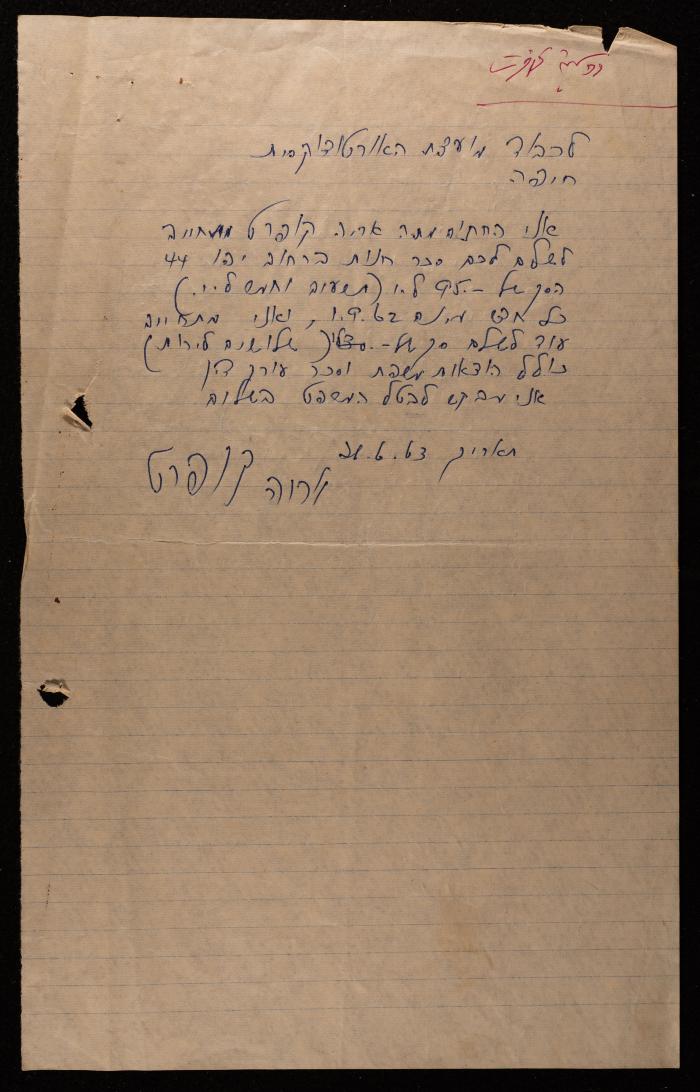 לכבוד מועצת האורטודוקסית
חיפה
אני החתום מטה אריה קופרט מתחייב
לשלם לכם סכר חנות ברחוב יפו 44
הסך של -.95 ל.י (תשעים וחמש ל.י.)
כל חדש, ואני מתחייב
עוד לשלם סך של (שלושים לירות)
כולל הוצאות משפט וסכר עורך דין
אני מבקש לבטל המשפט בשלום
תאריך 6.63
אריה קופרט